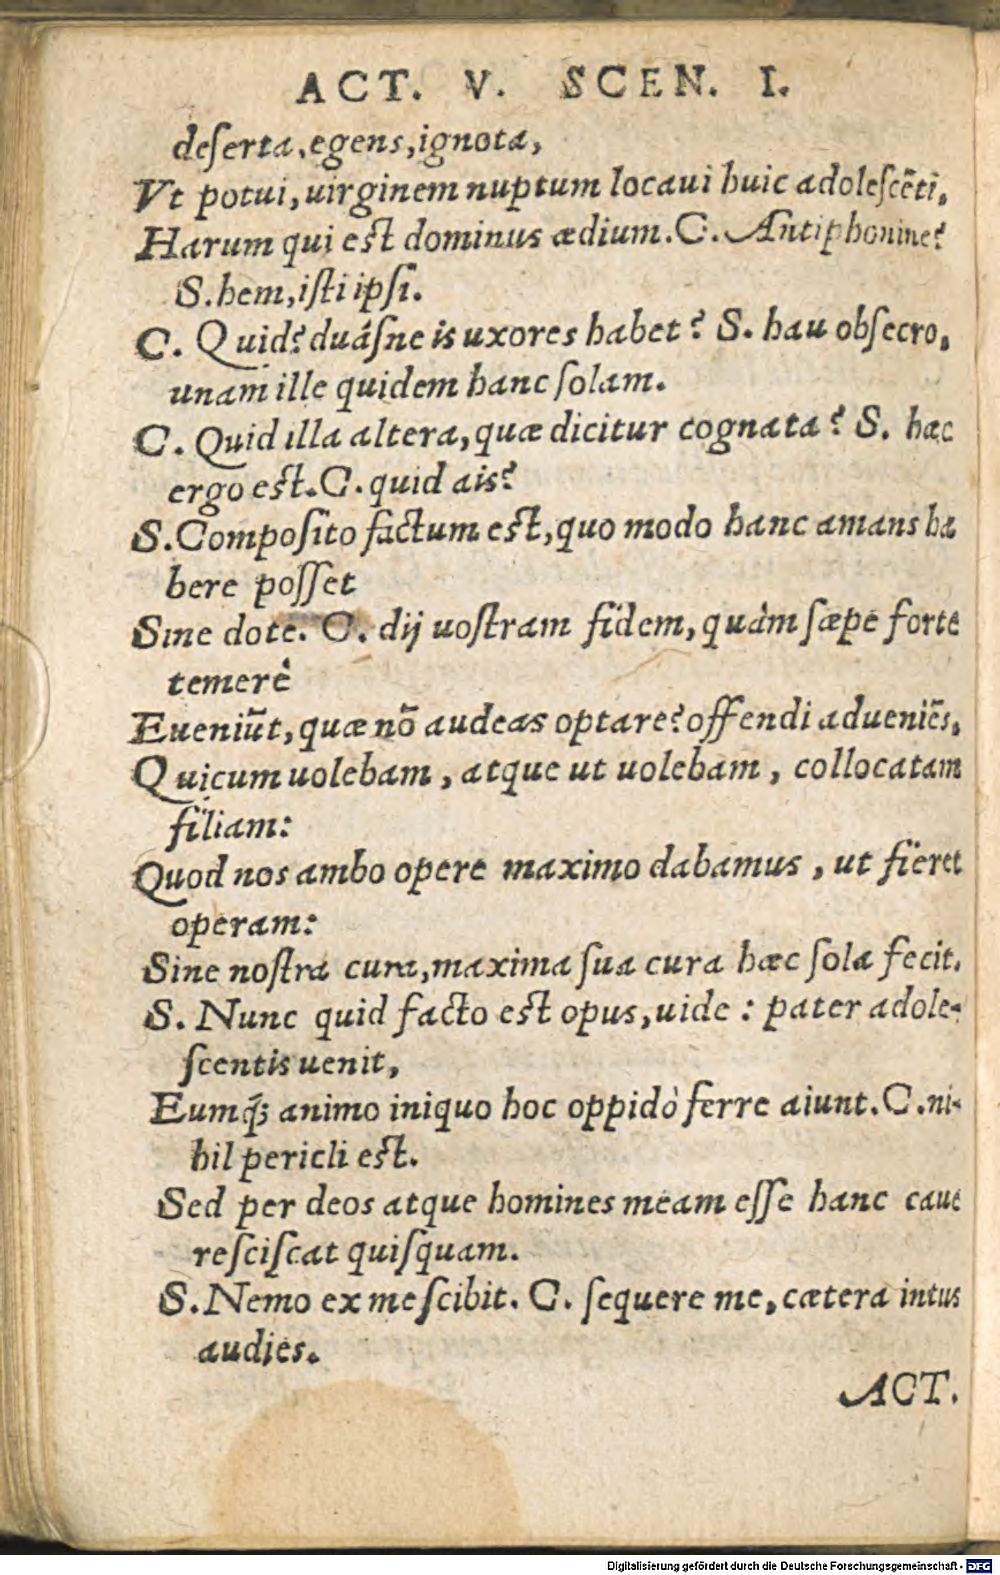 ACT. V. SCEN. I.
deſerta, egens, ignota,
Vt potui, uirginem nuptum locaui huic adoleſcẽti,
Harum qui eſt dominus ædium. C. Antiphonine?
S. hem, iſti ipſi.
C. Quid? duáſne is uxores habet? S. hau obſecro,
unam ille quidem hanc ſolam.
C. Quid illa altera, quæ dicitur cognata? S. hæc
ergo eſt. C. quid ais?
S. Compoſito factum eſt, quo modo hanc amans ha
bere poſſet
Sine dote. C. dij uoſtram fidem, quàm ſæpe forte
temerè
Eueniũt, quæ nõ audeas optare? offendi adueniẽs,
Quicum uolebam, atque ut uolebam, collocatam
filiam:
Quod nos ambo opere maximo dabamus, ut fieret
operam:
Sine noſtra cura, maxima ſua cura hæc ſola fecit.
S. Nunc quid facto eſt opus, uide: pater adole-
ſcentis uenit,
Eumq́ꝫ animo iniquo hoc oppidò ferre aiunt. C. ni-
hil pericli eſt.
Sed per deos atque homines meam eſſe hanc caue
reſciſcat quiſquam.
S. Nemo ex me ſcibit. C. ſequere me, cætera intus
audies.
ACT.
Digitalisierung gefördert durch die Deutsche Forschungsgemeinschaft - DFG